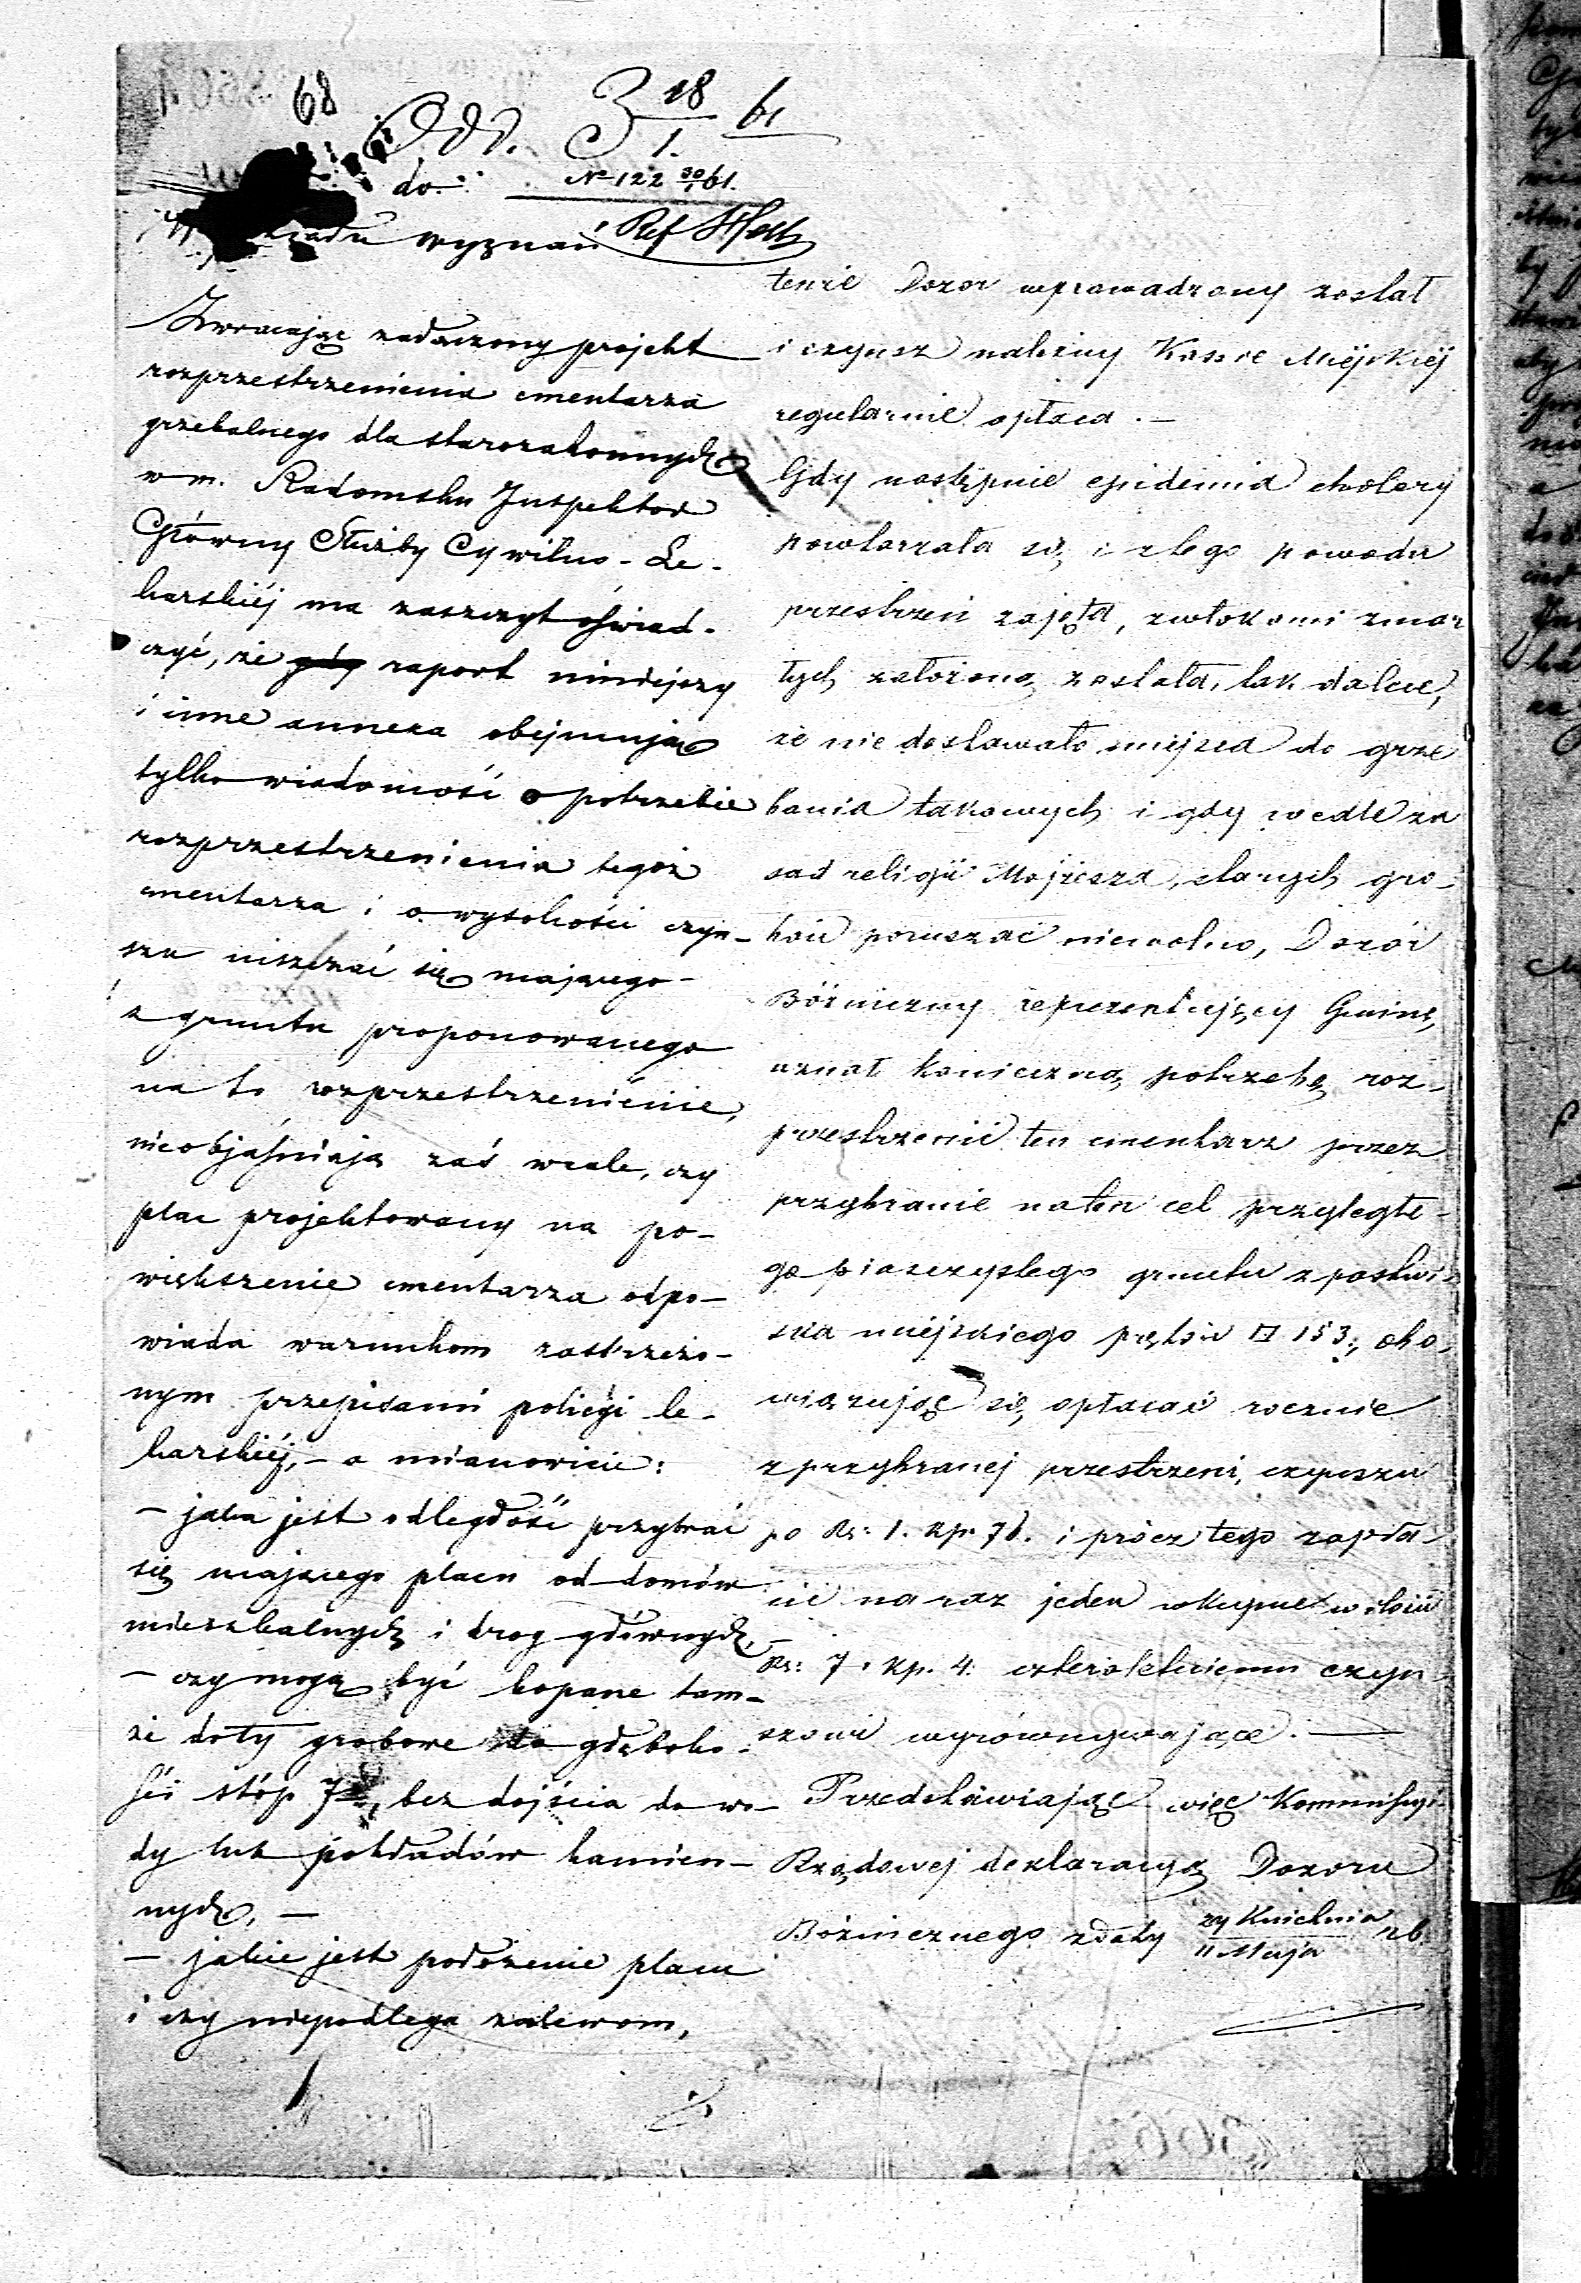 68
Odd. 3 18/1. 61
do. № 122 30/1 61.
wyznań Ref
Zwracając załączony projekt
rozprzestrzenienia cmentarza
grzebalnego dla starozakonnych
w m. Radomsku Inspektor
Główny Służby Cywilno-Le-
karskiéj ma zaszczyt oświad-
czyć, że gdy raport niniejszy
i inne annexa obejmują
tylko wiadomość o potrzebie
rozprzestrzenienia tegoż
cmentarza i o wysokości czyn-
szu uiszczać się mającego
z gruntu proponowanego
na to rozprzestrzenienie,
nieobjaśniają zaś wcale, czy
plac projektowany na po-
większenie cmentarza odpo-
wiada warunkom zastrzeżo-
nym przepisami policyi le-
karskiéj, – a mianowicie:
– jaka jest odległość przybrać
się mającego placu od domów
mieszkalnych i dróg głównych,
– czy mogą być kopane tam-
że doły grobowe do głęboko-
ści stóp 7, bez dojścia do wo-
dy lub pokładów kamien-
nych, –
– jakie jest położenie placu
i czy niepodlega zalewom,
tenże Dozor wprowadzony został
i czynsz należny Kassie Miejskiéj
regularnie opłaca. –
Gdy następnie epidemia cholery
powtarzała się, i z tego powodu
przestrzeń zajęta, zwłokami zmar
łych założoną została, tak dalece,
że nie dostawało miejsca do grze
bania takowych i gdy wedle za
sad religii Mojżesza, starych gro-
bów poruszać niewolno, Dozór
Bóżniczny reprezentujący Gminę,
uznał konieczną potrzebę roz-
przestrzenić ten cmentarz przez
przybranie na ten cel przyległe-
go piaszczystego gruntu z pastwi-
ska miéjskiego prętów □ 153, obo-
wiązując się, opłacać rocznie
z przybranej przestrzeni, czynszu
po Rs: 1. kp. 76. i prócz tego zapła-
cić na raz jeden wkupne w ilości
Rs: 7. kp. 4. czteroletniemu czyn-
szowi wyrównywające. –
Przedstawiając więc Kommissyi
Rządowej deklaracyą Dozoru
Bóżnicznego z daty 29 Kwietnia/11 Maja r.b.